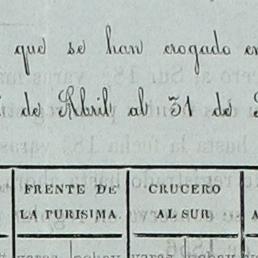 que se han erogado en
de Abril al 31 de
FRENTE DE LA PURISIMA.
CRUCERO AL SUR
A